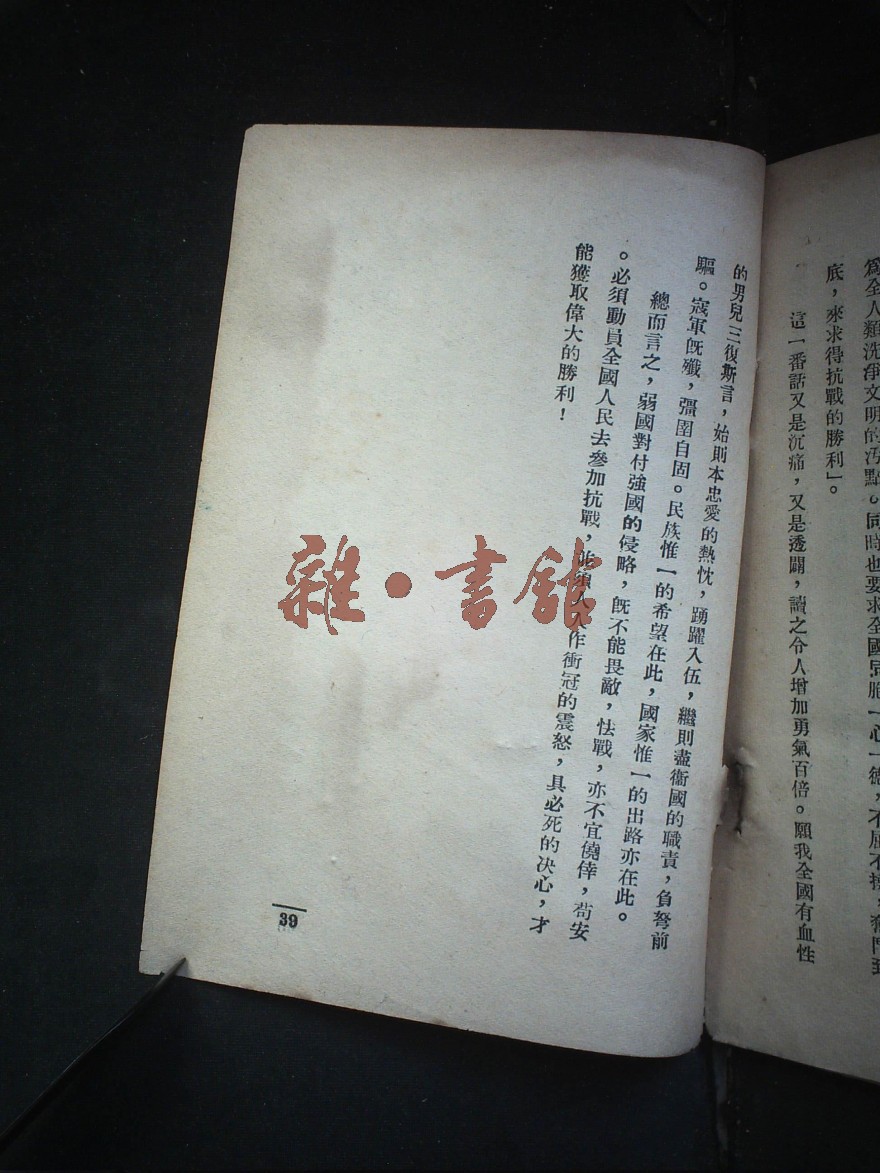 爲全人類洗淨文明的汚點。同時也要求全國同胞一心一德，不屈不撓，奮鬥到
底，來求得抗戰的勝利」。
這一番話又是沉痛，又是透闢，讀之令人增加勇氣百倍。願我全國有血性
的男兒三復斯言，始則本忠愛的熱忱，踴躍入伍，繼則盡衞國的職責，負弩前
驅。寇軍既殲，彊圉自固。民族惟一的希望在此，國家惟一的出路亦在此。
總而言之，弱國對付強國的侵略，旣不能畏敵，怯戰，亦不宜僥倖，苟安
。必須動員全國人民去參加抗戰，人人作衝冠的震怒，具必死的决心，才
能獲取偉大的勝利！
39
雜·書館